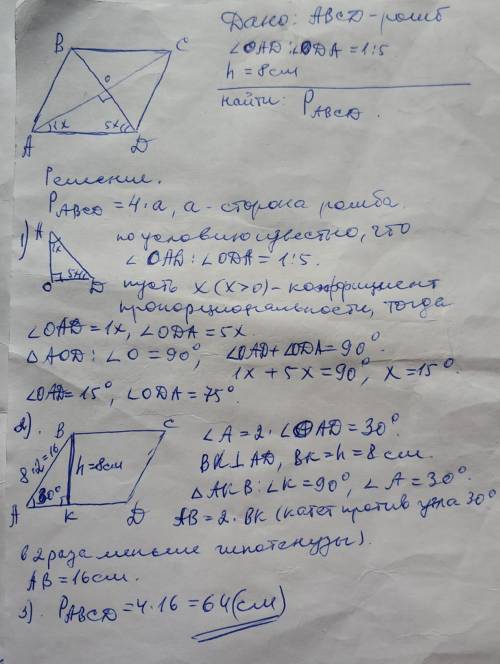 Дано: ABCD - ромб
∠OAD:∠ODA = 1:5
h = 8см
найти: P ABCD.
B C
O
1x 5x
A D
Решение.
P ABCD = 4·a, a - сторона ромба.
1) A
1x
O 5x D
по условию известно, что
∠OAD:∠ODA = 1:5.
пусть x (x>0) - коэффициент
пропорциональности, тогда
∠OAD = 1x, ∠ODA = 5x.
△AOD: ∠O = 90°, ∠OAD + ∠ODA = 90°
1x + 5x = 90°, x = 15°.
∠OAD = 15°, ∠ODA = 75°
2). B C
8·2=16
h=8см
30°
A K D
∠A = 2·∠OAD = 30°
BK⊥AD, BK = h = 8 см.
△AKB: ∠K = 90°, ∠A = 30°.
AB = 2·BK (катет против угла 30°
в 2 раза меньше гипотенузы).
AB = 16см.
3). P ABCD = 4·16 = 64 (см)